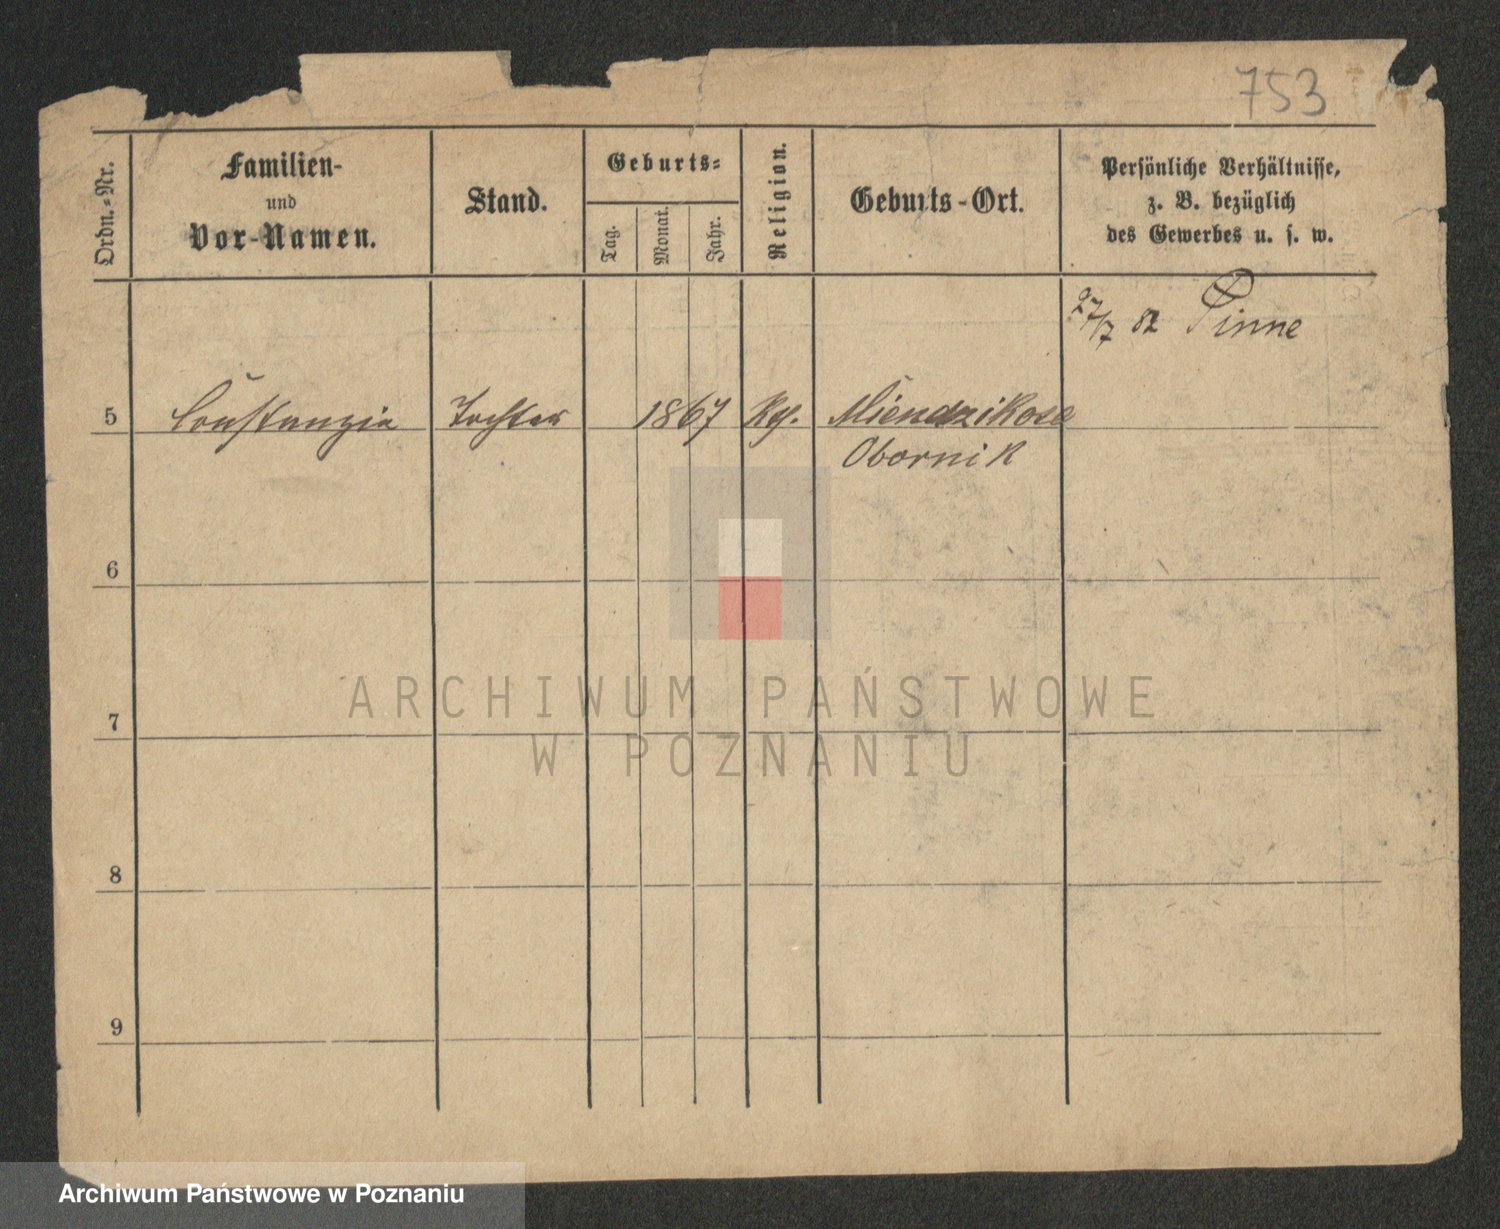 753
Ordn.-Nr.
Familien-
und
Vor-Namen.
Stand.
Geburts-
Tag.
Monat.
Jahr.
Religion.
Geburts-Ort.
Persönliche Verhältnisse,
z. B. bezüglich
des Gewerbes u. s. w.
27/7 82 Pinne
5 Constanzia Tochter 1867
Obornik
6
7
8
9
ARCHIWUM PAŃSTWOWE
W POZNANIU
Archiwum Państwowe w Poznaniu